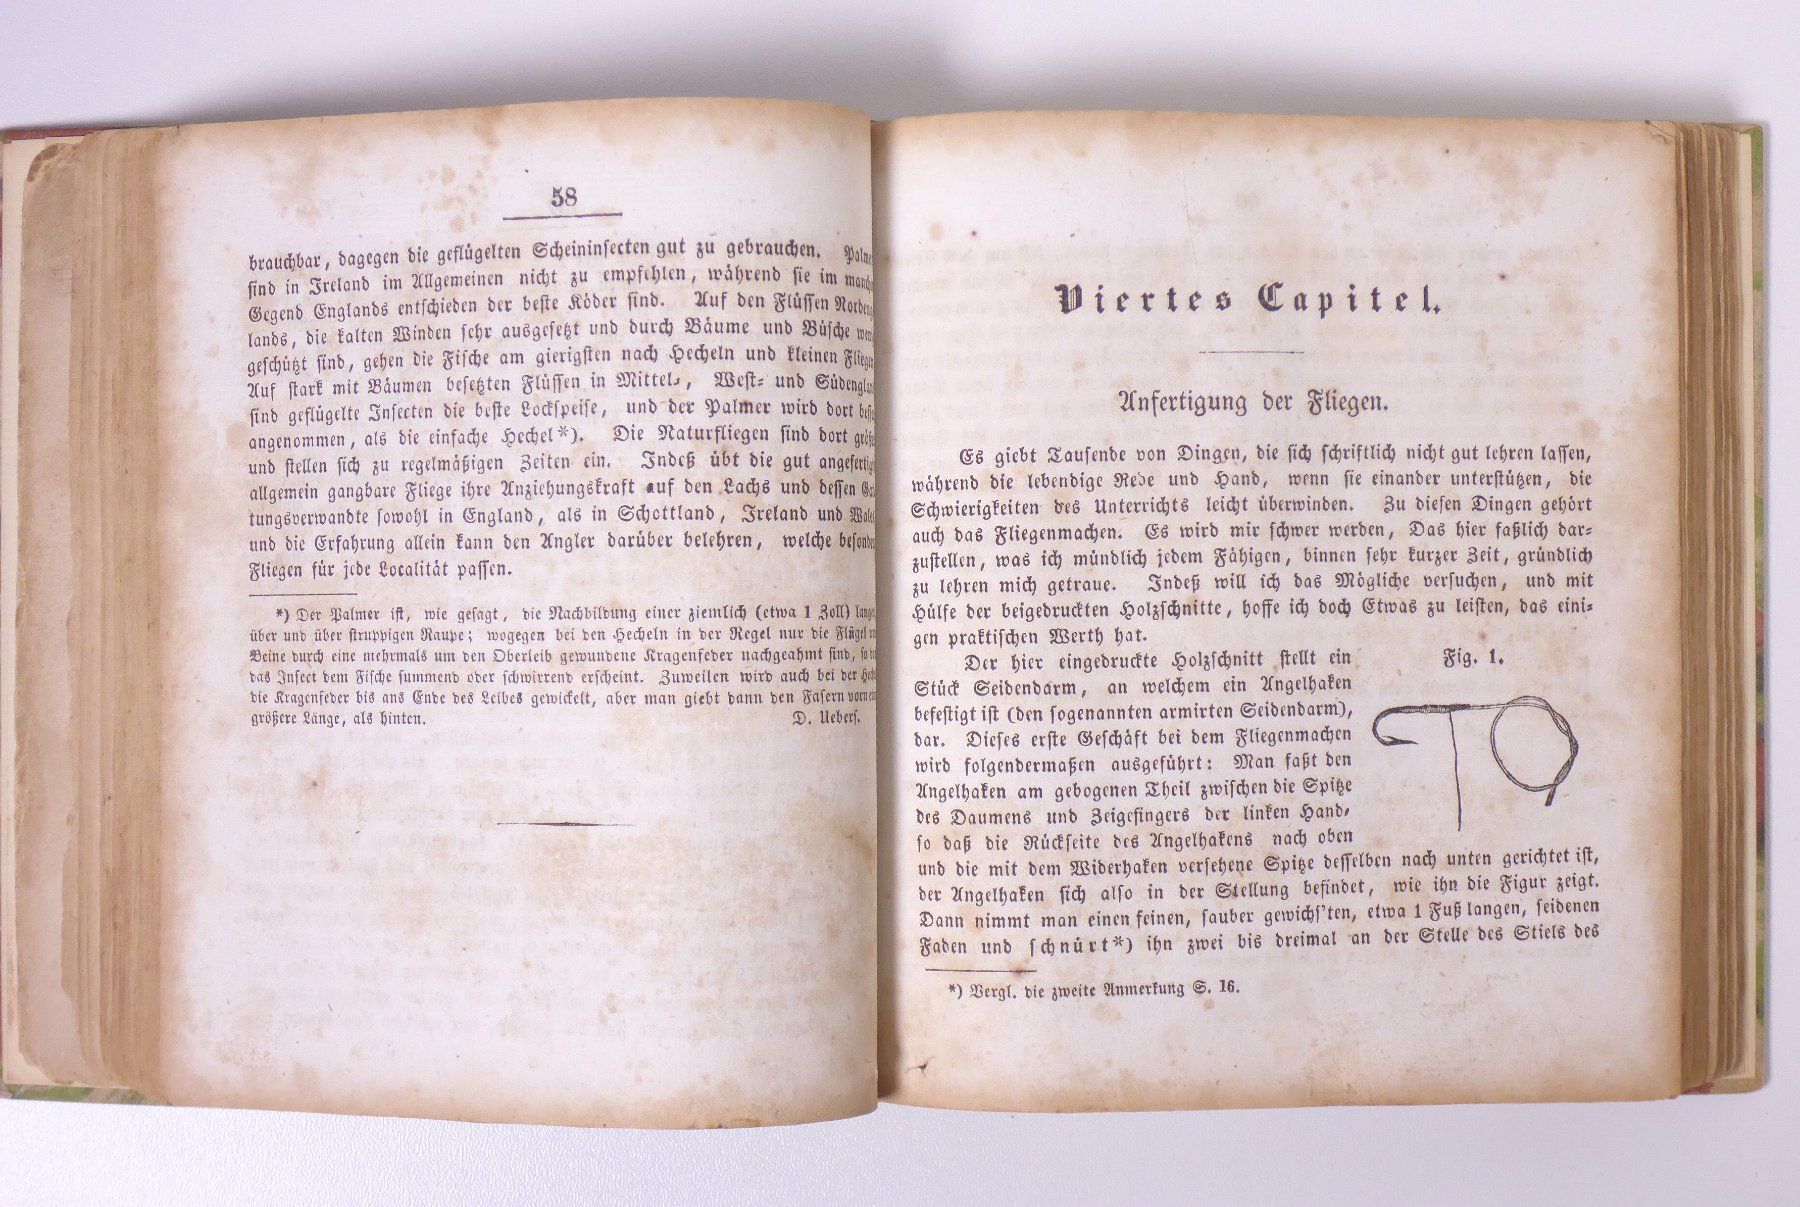 58
brauchbar, dagegen die geflügelten Scheininsecten gut zu gebrauchen. Palme
sind in Ireland im Allgemeinen nicht zu empfehlen, während sie im manche
Gegend Englands entschieden der beste Köder sind. Auf den Flüssen Norden
lands, die kalten Winden sehr ausgesetzt und durch Bäume und Büsche
geschützt sind, gehen die Fische am gierigsten nach Hecheln und kleinen Fliegen
Auf stark mit Bäumen besetzten Flüssen in Mittel-, West- und Südengland
sind geflügelte Insecten die beste Lockspeise, und der Palmer wird dort
angenommen, als die einfache Hechel*). Die Naturfliegen sind dort größ
und stellen sich zu regelmäßigen Zeiten ein. Indeß übt die gut angefertig
allgemein gangbare Fliege ihre Anziehungskraft auf den Lachs und dessen
tungsverwandte sowohl in England, als in Schottland, Ireland und Wales
und die Erfahrung allein kann den Angler darüber belehren, welche besonder
Fliegen für jede Localität passen.
*) Der Palmer ist, wie gesagt, die Nachbildung einer ziemlich (etwa 1 Zoll) langen
über und über struppigen Raupe; wogegen bei den Hecheln in der Regel nur die Flügel
Beine durch eine mehrmals um den Oberleib gewundene Kragenfeder nachgeahmt sind, so
das Insect dem Fische summend oder schwirrend erscheint. Zuweilen wird auch bei der
die Kragenfeder bis ans Ende des Leibes gewickelt, aber man giebt dann den Fasern vorn
größere Länge, als hinten. D. Uebers.
Viertes Capitel.
Anfertigung der Fliegen.
Es giebt Tausende von Dingen, die sich schriftlich nicht gut lehren lassen,
während die lebendige Rede und Hand, wenn sie einander unterstützen, die
Schwierigkeiten des Unterrichts leicht überwinden. Zu diesen Dingen gehört
auch das Fliegenmachen. Es wird mir schwer werden, Das hier faßlich dar-
zustellen, was ich mündlich jedem Fähigen, binnen sehr kurzer Zeit, gründlich
zu lehren mich getraue. Indeß will ich das Mögliche versuchen, und mit
Hülfe der beigedruckten Holzschnitte, hoffe ich doch Etwas zu leisten, das eini-
gen praktischen Werth hat.
Der hier eingedruckte Holzschnitt stellt ein
Stück Seidendarm, an welchem ein Angelhaken
befestigt ist (den sogenannten armirten Seidendarm),
dar. Dieses erste Geschäft bei dem Fliegenmachen
wird folgendermaßen ausgeführt: Man faßt den
Angelhaken am gebogenen Theil zwischen die Spitze
des Daumens und Zeigefingers der linken Hand,
so daß die Rückseite des Angelhakens nach oben
Fig. 1.
und die mit dem Widerhaken versehene Spitze desselben nach unten gerichtet ist,
der Angelhaken sich also in der Stellung befindet, wie ihn die Figur zeigt.
Dann nimmt man einen feinen, sauber gewichs'ten, etwa 1 Fuß langen, seidenen
Faden und schnürt*) ihn zwei bis dreimal an der Stelle des Stiels des
*) Vergl. die zweite Anmerkung S. 16.